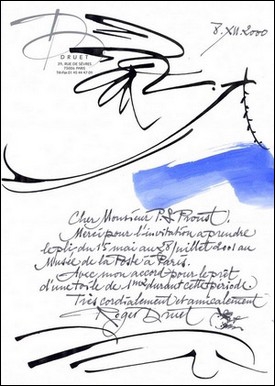 DRUET
29, RUE DE SÈVRES
75006 PARIS
8.XII.2000
Cher Monsieur P.J. Proust,
Merci pour l'invitation a prendre
le pli du 15 mai au 28 juillet 2001 au
Musée de la Poste à Paris.
Avec mon accord pour le prêt
d'une toile de 1m2 durant cette période
Très cordialement et amicalement
Roger Druet